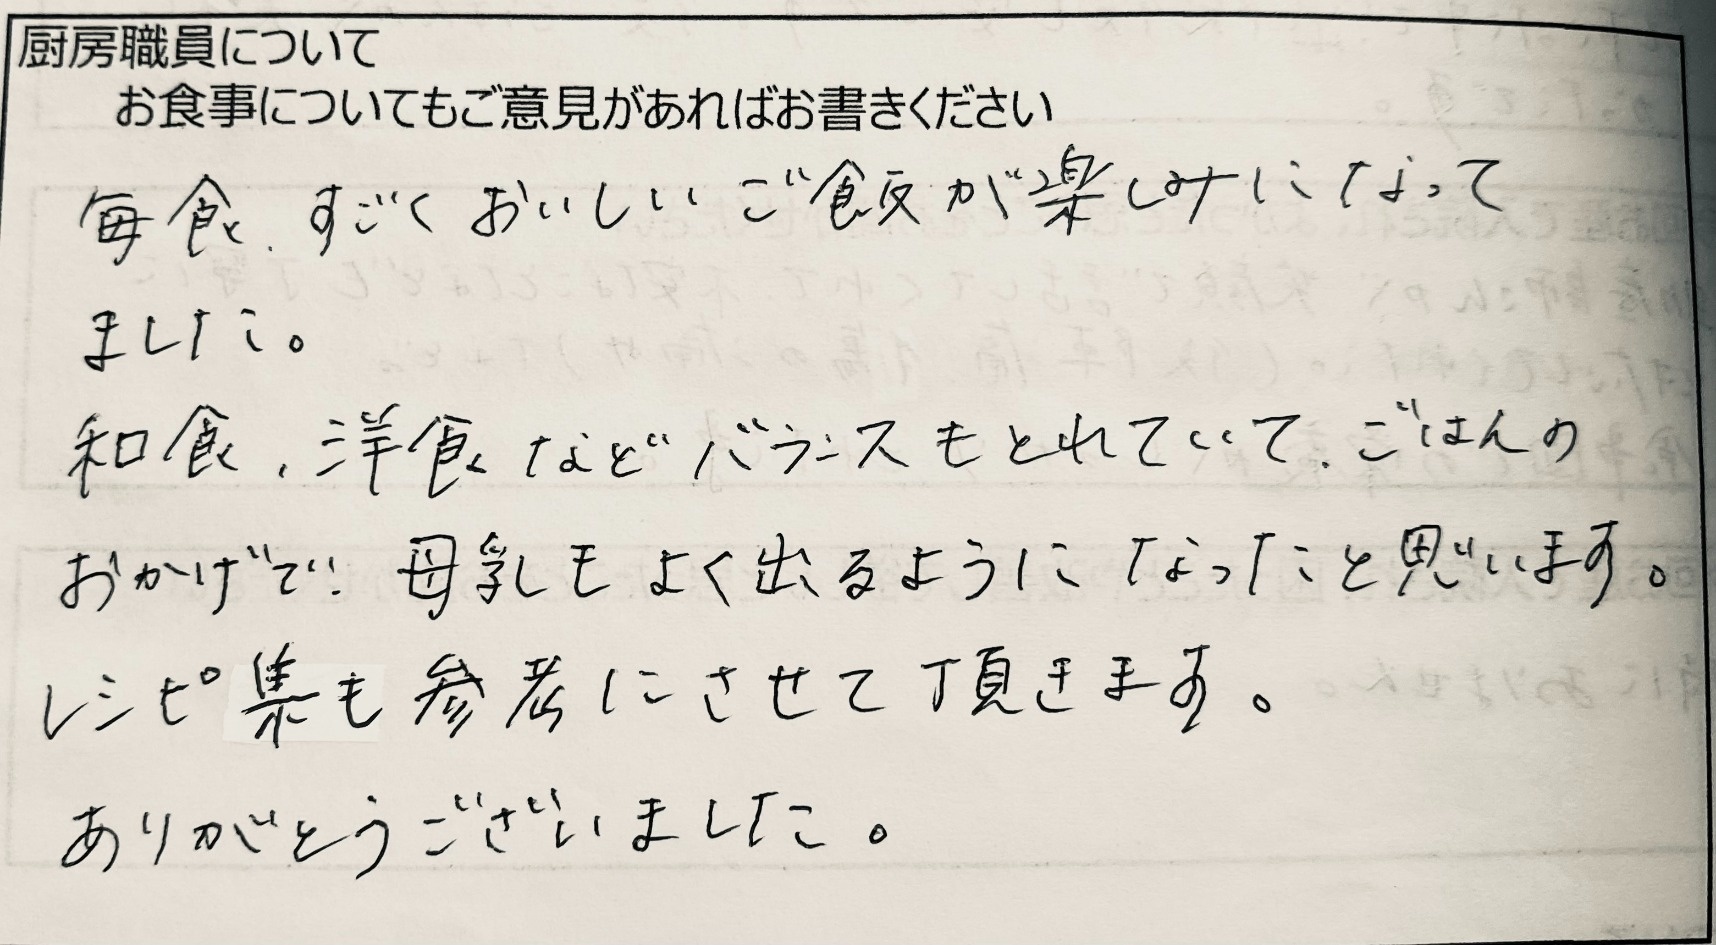 厨房職員について
お食事についてもご意見があればお書きください
毎食、すごくおいしいご飯が楽しみになって
ました。
和食、洋食などバランスもとれていて、ごはんの
おかげで、母乳もよく出るようになったと思います。
レシピ集も参考にさせて頂きます。
ありがとうございました。